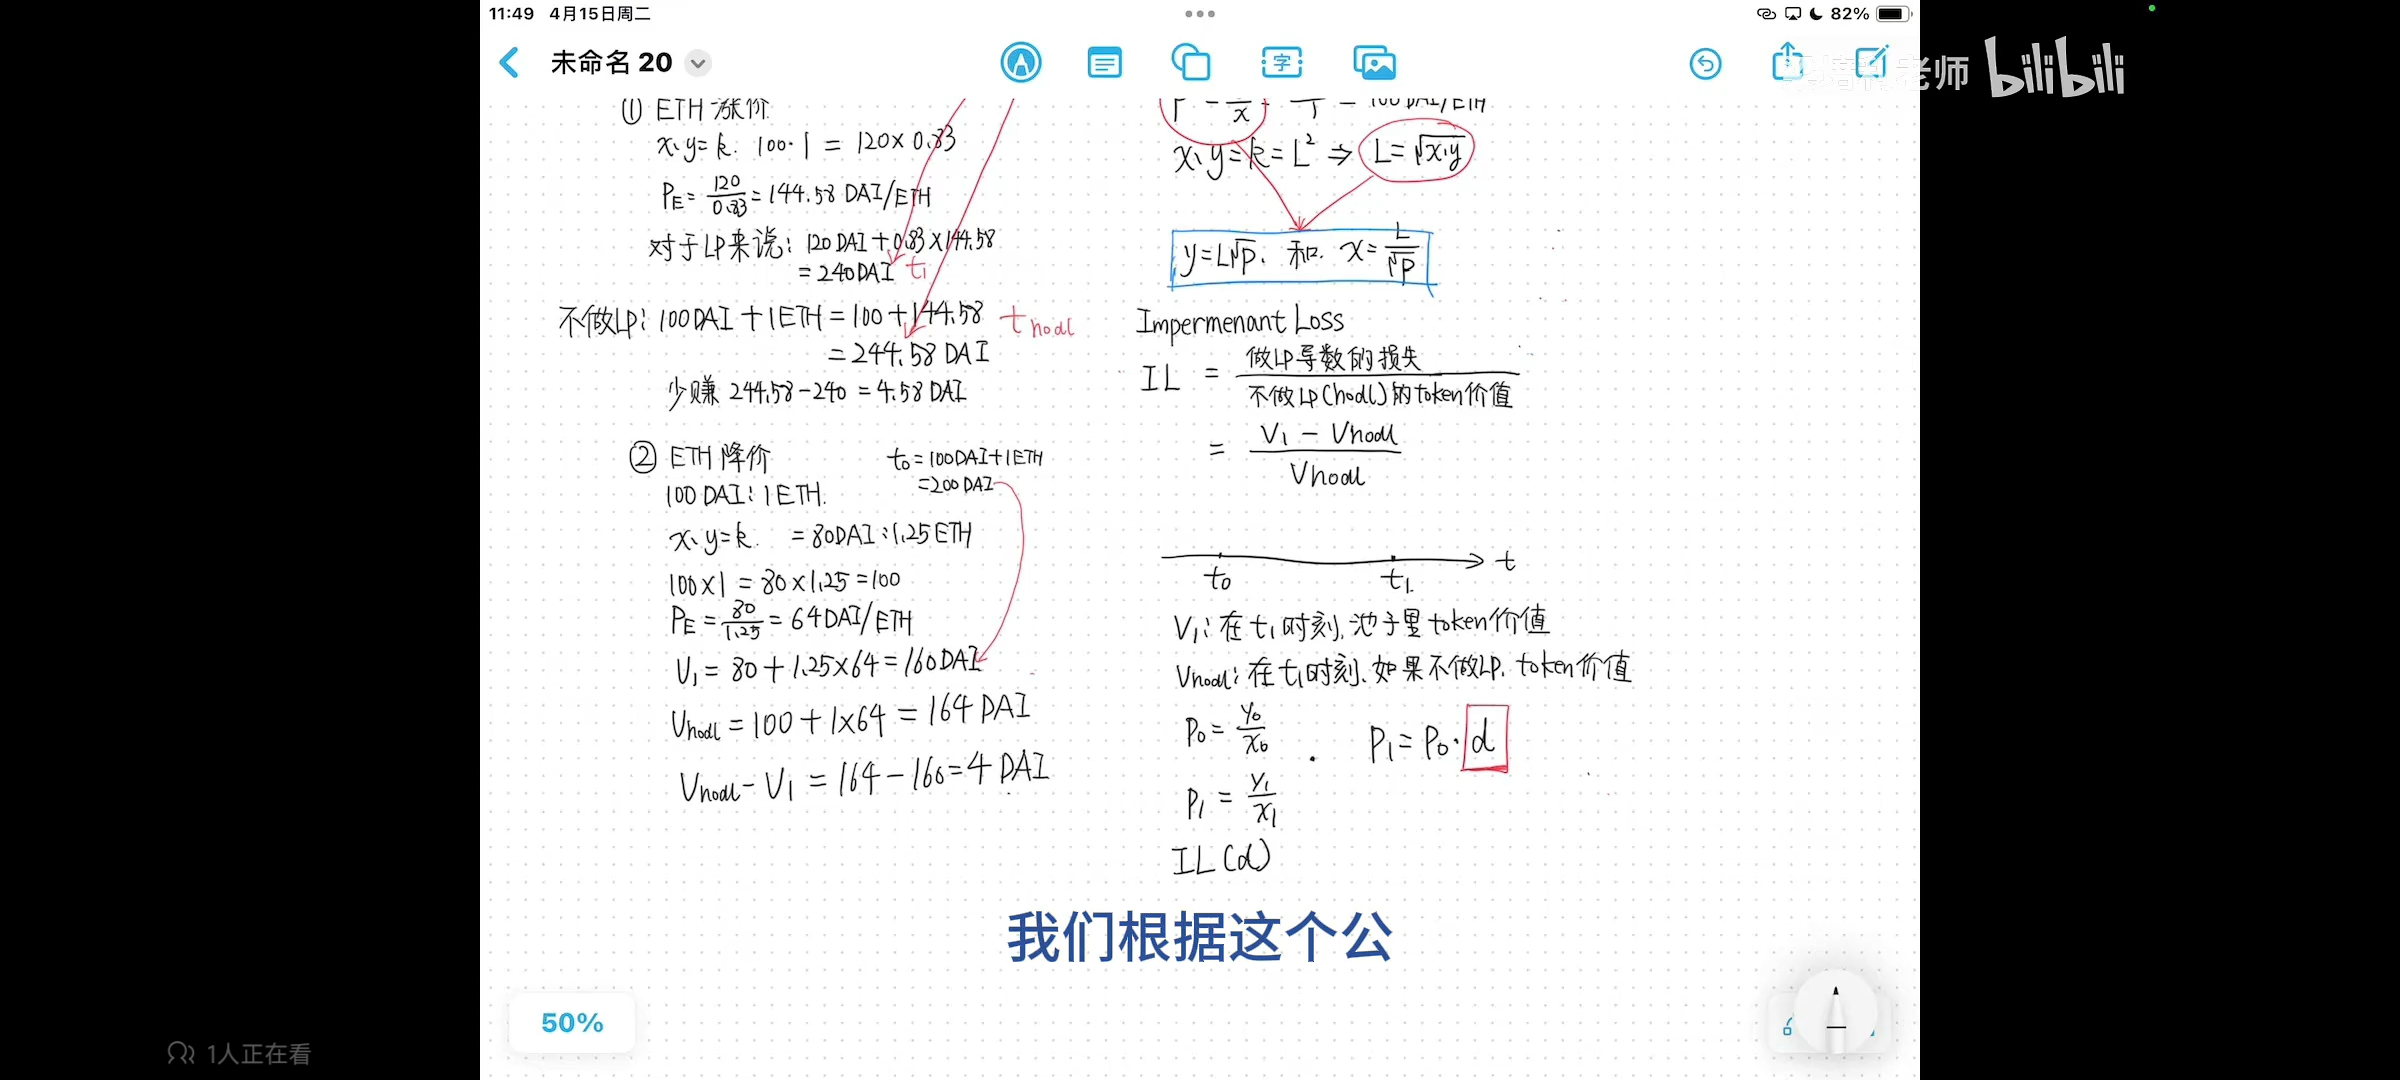 11:49 4月15日周二
82%
未命名 20
字
老师 bilibili
① ETH 涨价
x·y=k. 100·1 = 120×0.83
PE= 120/0.83 = 144.58 DAI/ETH
对于LP来说: 120DAI+0.83×144.58
=240DAI t₁
不做LP: 100DAI+1ETH=100+144.58 t hodl
=244.58 DAI
少赚 244.58-240 = 4.58 DAI
② ETH 降价
t₀=100DAI+1ETH
=200DAI
100 DAI:1ETH.
x·y=k. =80DAI:1.25ETH
100×1=80×1.25=100
PE=80/1.25=64DAI/ETH
V₁=80+1.25×64=160DAI
Vhodl=100+1×64=164DAI
Vhodl-V₁=164-160=4DAI
x·y=k=L² ⇒ L=√x·y
y=L√p. 和. x=L/√p
Impermenant Loss
IL = 做LP导数的损失/不做LP(hodl)的token价值
= V₁-Vhodl/Vhodl
t₀ t₁ t
V₁:在t₁时刻,池子里token价值
Vhodl:在t₁时刻,如果不做LP,token价值
P₀=y₀/x₀ . P₁=P₀·d
P₁=y₁/x₁
IL(d)
我们根据这个公
50%
1人正在看